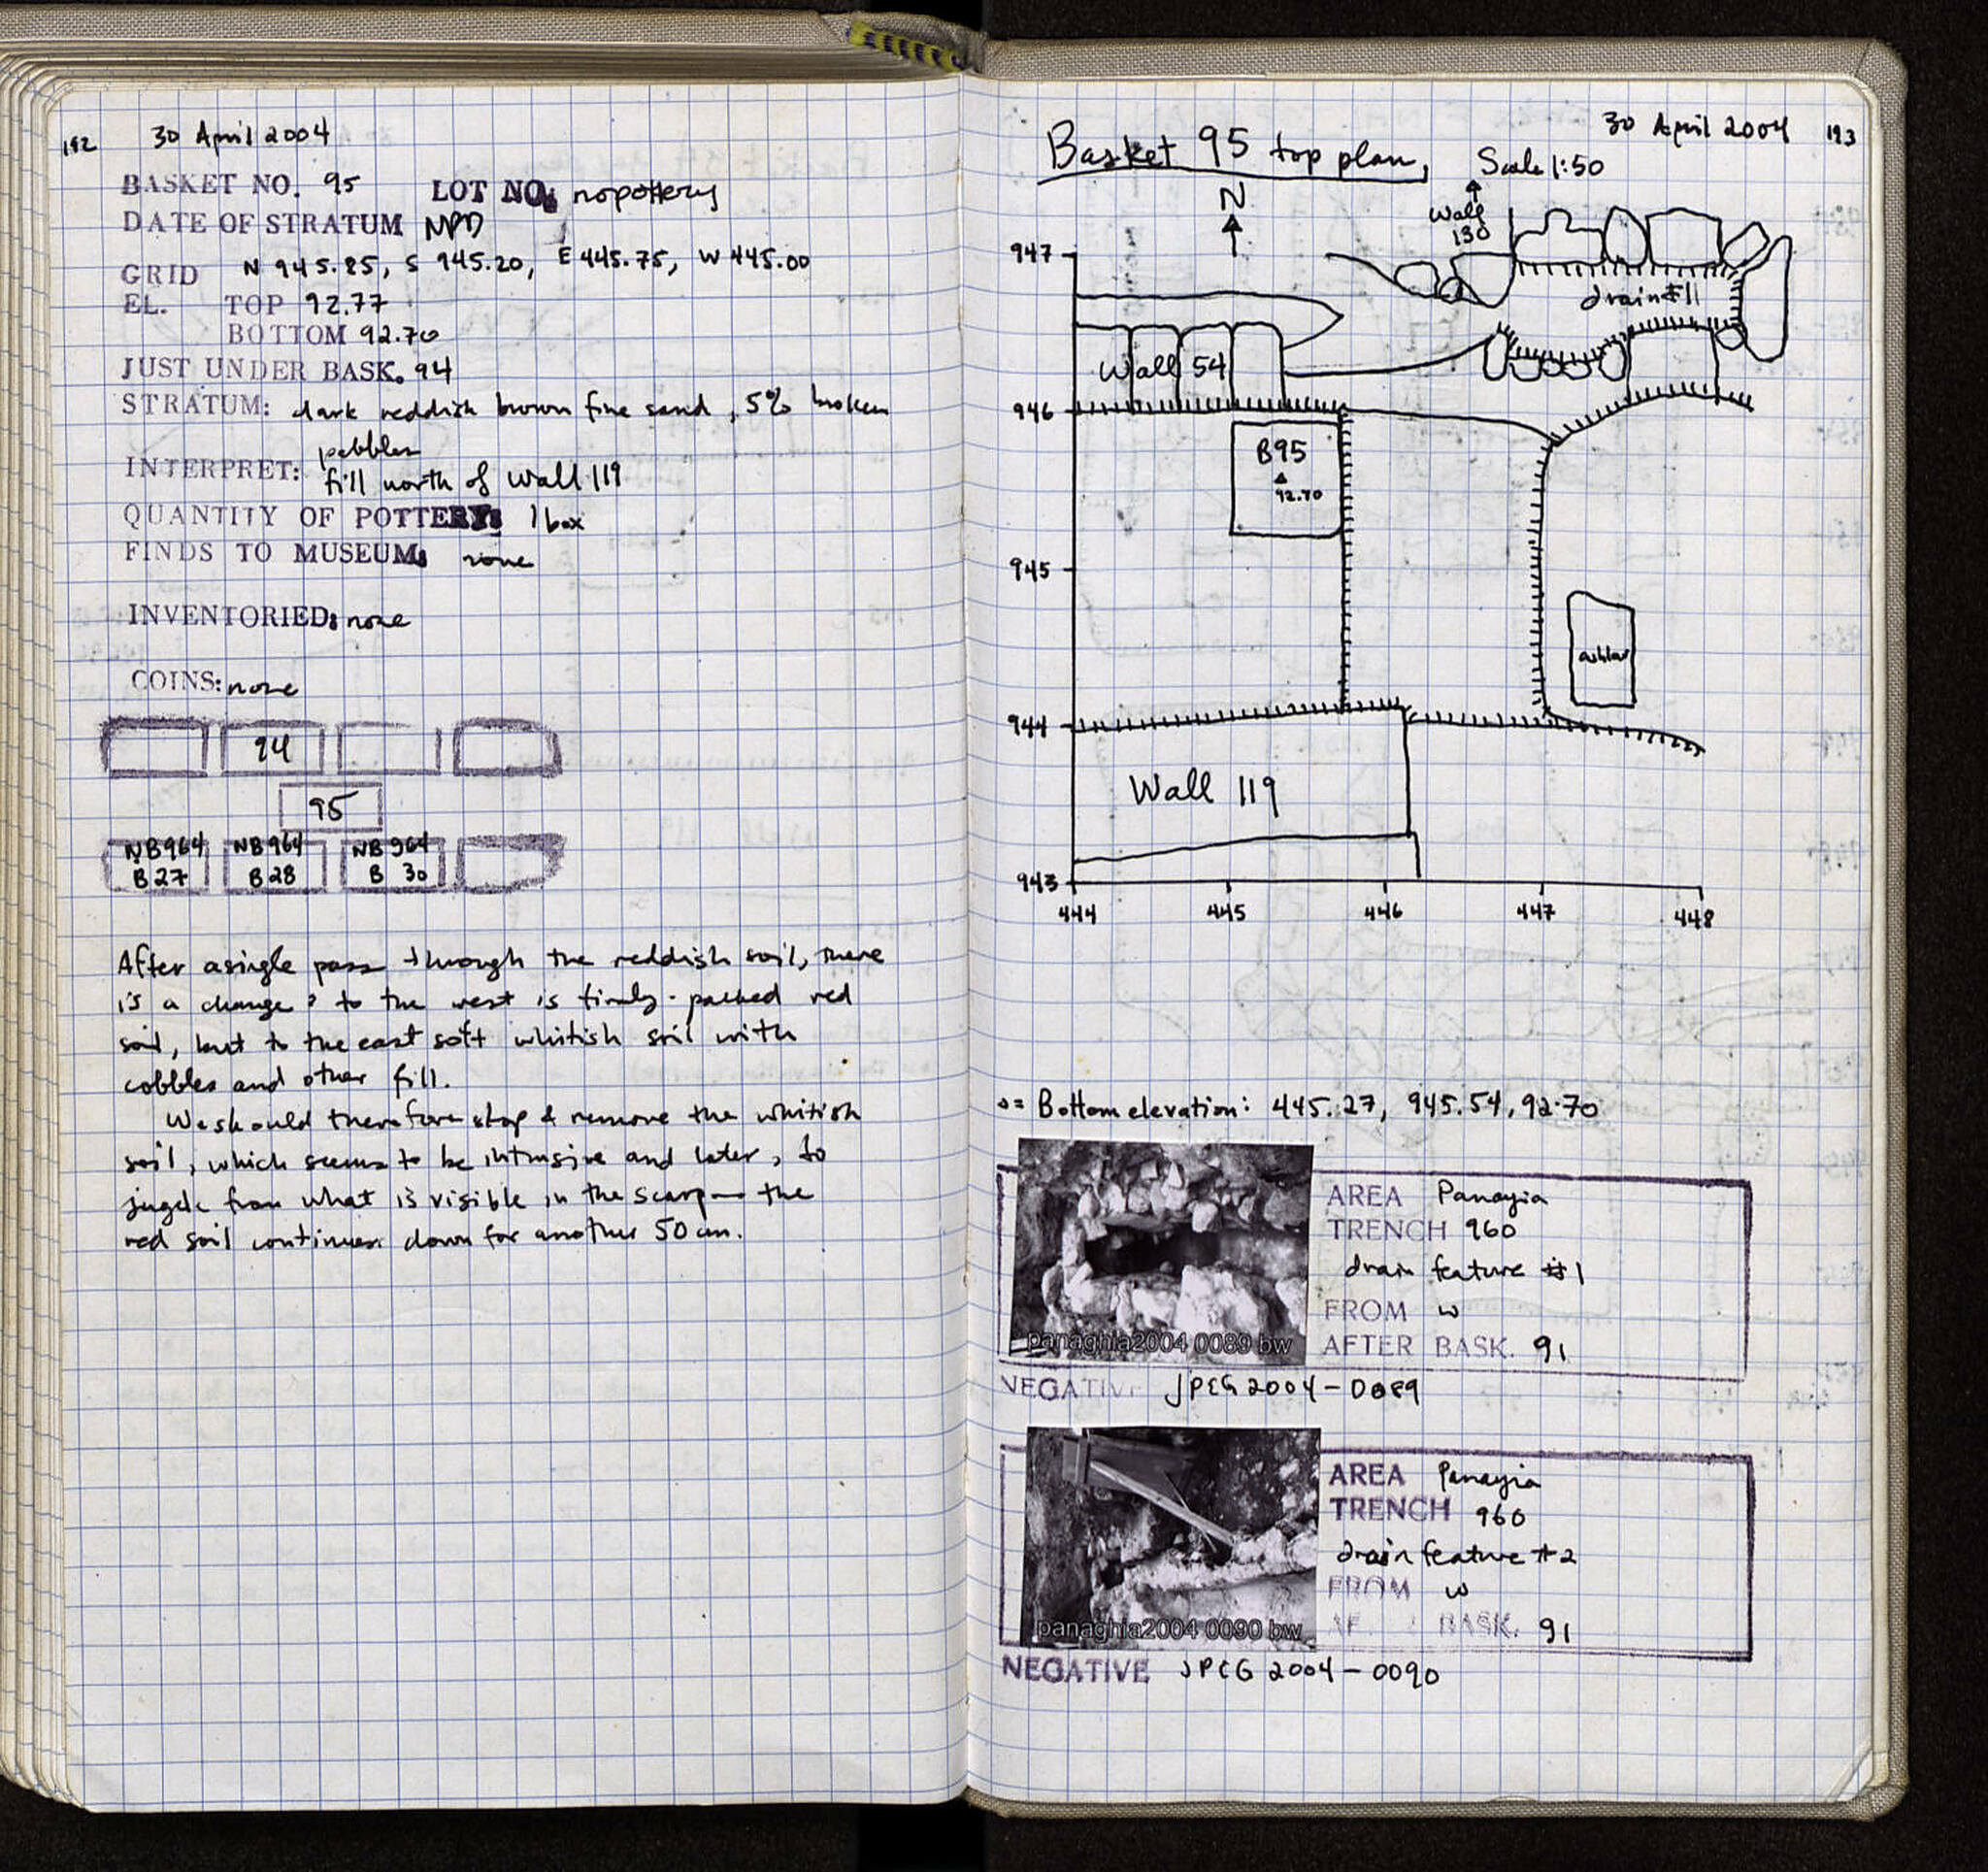 192 30 April 2004
BASKET NO. 95 LOT NO: no pottery
DATE OF STRATUM NPD
GRID N 945.85, S 945.20, E 445.75, W 445.00
EL. TOP 92.77
BOTTOM 92.70
JUST UNDER BASK. 94
STRATUM: dark reddish brown fine sand, 5% broken
pebbles
INTERPRET: fill north of Wall 119
QUANTITY OF POTTERY: 1 box
FINDS TO MUSEUM: none
INVENTORIED: none
COINS: none
94
95
NB964 NB964 NB964
B27 B28 B 30
After a single pass through the reddish soil, there
is a change: to the west is firmly-packed red
soil, but to the east soft whitish soil with
cobbles and other fill.
We should therefore stop & remove the whitish
soil, which seems to be intrusive and later, to
jugde from what is visible in the scarp — the
red soil continues down for another 50 cm.
30 April 2004 193
Basket 95 top plan, Scale 1:50
N
Wall
130
947
drain #1
Wall 54
946
B95
92.70
945
ashlar
944
Wall 119
943
444 445 446 447 448
△= Bottom elevation: 445.27, 945.54, 92.70
AREA Panayia
TRENCH 960
drain feature #1
FROM W
AFTER BASK. 91
panaghia2004 0089 bw
NEGATIVE JPEG 2004-0089
AREA Panayia
TRENCH 960
drain feature #2
FROM W
BASK. 91
panaghia2004 0090 bw
NEGATIVE JPEG 2004-0090